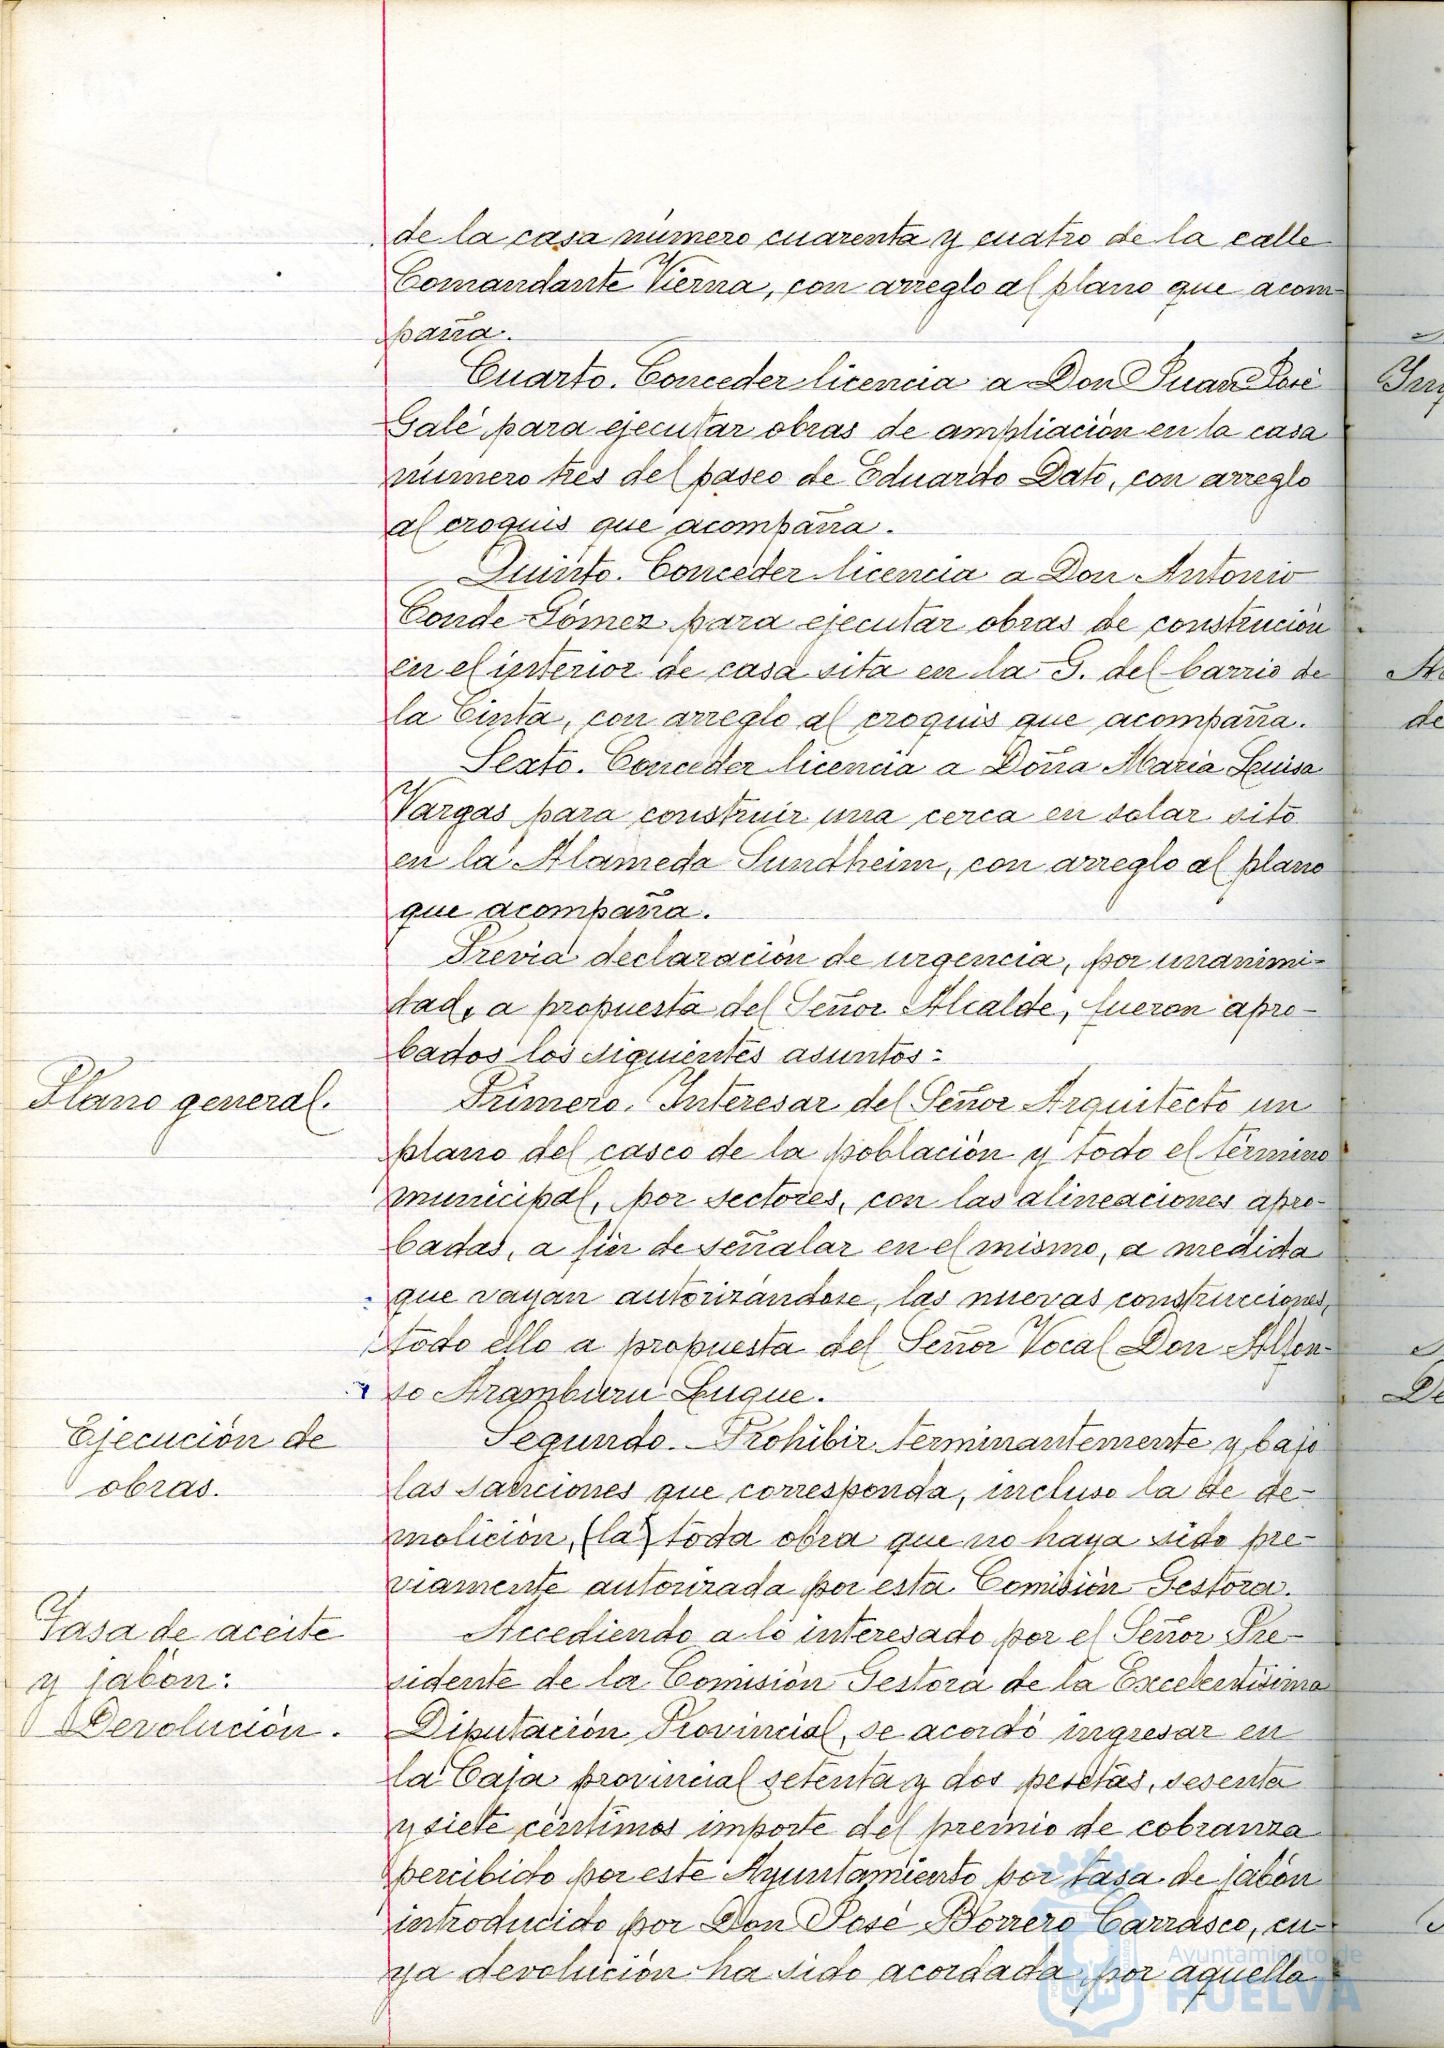 de la casa número cuarenta y cuatro de la calle
Comandante Vierna, con arreglo al plano que acom-
paña.
Cuarto. Conceder licencia a Don Juan José
Galé para ejecutar obras de ampliación en la casa
número tres del paseo de Eduardo Dato, con arreglo
al croquis que acompaña.
Quinto. Conceder licencia a Don Antonio
Conde Gómez para ejecutar obras de construcción
en el interior de casa sita en la G. del barrio de
la Cinta, con arreglo al croquis que acompaña.
Sexto. Conceder licencia a Doña María Luisa
Vargas para construir una cerca en solar sito
en la Alameda Sundheim, con arreglo al plano
que acompaña.
Previa declaración de urgencia, por unanimi-
dad, a propuesta del Señor Alcalde, fueron apro-
bados los siguientes asuntos:
Plano general.
Primero. Interesar del Señor Arquitecto un
plano del casco de la población y todo el término
municipal, por sectores, con las alineaciones apro-
badas, a fin de señalar en el mismo, a medida
que vayan autorizándose, las nuevas construcciones,
todo ello a propuesta del Señor Vocal Don Alfon-
so Aramburu Luque.
Ejecución de
obras.
Segundo. Prohibir terminantemente y bajo
las sanciones que corresponda, incluso la de de-
molición, (la) toda obra que no haya sido pre-
viamente autorizada por esta Comisión Gestora.
Tasa de aceite
y jabón:
Devolución.
Accediendo a lo interesado por el Señor Pre-
sidente de la Comisión Gestora de la Excelentísima
Diputación Provincial, se acordó ingresar en
la Caja provincial setenta y dos pesetas, sesenta
y siete céntimos importe del premio de cobranza
percibido por este Ayuntamiento por tasa de jabón
introducido por Don José Borrero Carrasco, cu-
ya devolución ha sido acordada por aquella
Ayuntamiento de
HUELVA